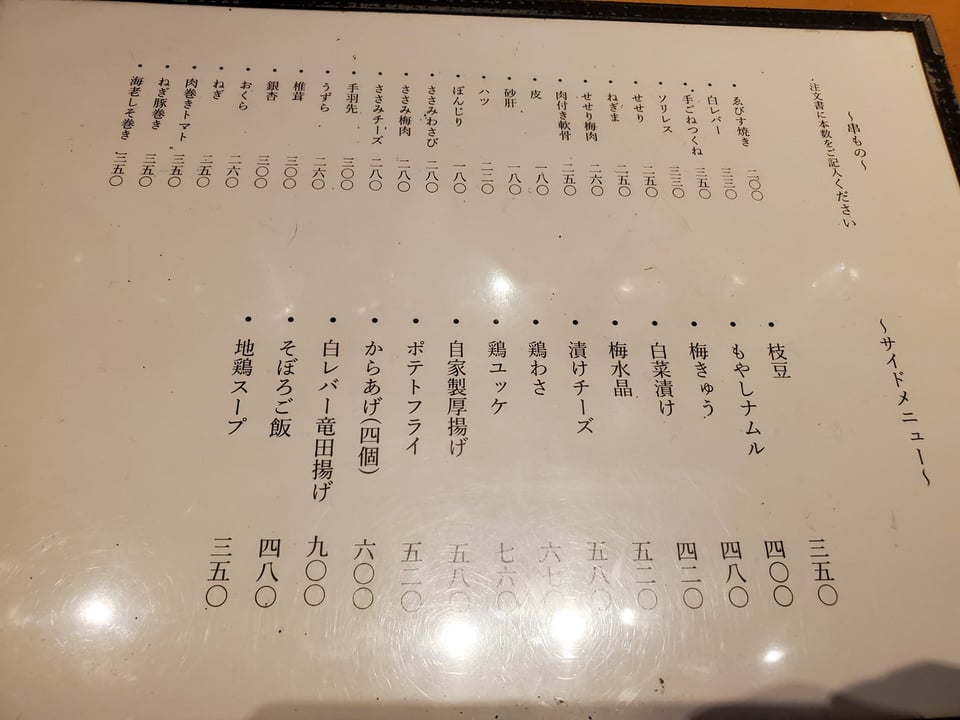 ~串もの~
.注文書に本数をご記入ください
・ゑびす焼き 二〇〇
・白レバー 三三〇
・手ごねつくね 三五〇
・ソリレス 三三〇
・せせり 二五〇
・ねぎま 二五〇
・せせり梅肉 二六〇
・肉付き軟骨 二五〇
・皮 一八〇
・砂肝 一八〇
・ハツ 二二〇
・ぼんじり 一八〇
・ささみわさび 二八〇
・ささみ梅肉 二八〇
・ささみチーズ 二八〇
・手羽先 三〇〇
・うずら 二六〇
・椎茸 三〇〇
・銀杏 三〇〇
・おくら 二六〇
・ねぎ 二五〇
・肉巻きトマト 三五〇
・ねぎ豚巻き 三五〇
・海老しそ巻き 三五〇
~サイドメニュー~
・枝豆 三五〇
・もやしナムル 四〇〇
・梅きゅう 四八〇
・白菜漬け 四二〇
・梅水晶 五二〇
・漬けチーズ 五八〇
・鶏わさ
・鶏ユッケ 七六〇
・自家製厚揚げ 五八〇
・ポテトフライ 五二〇
・からあげ(四個) 六〇〇
・白レバー竜田揚げ 九〇〇
・そぼろご飯 四八〇
・地鶏スープ 三五〇